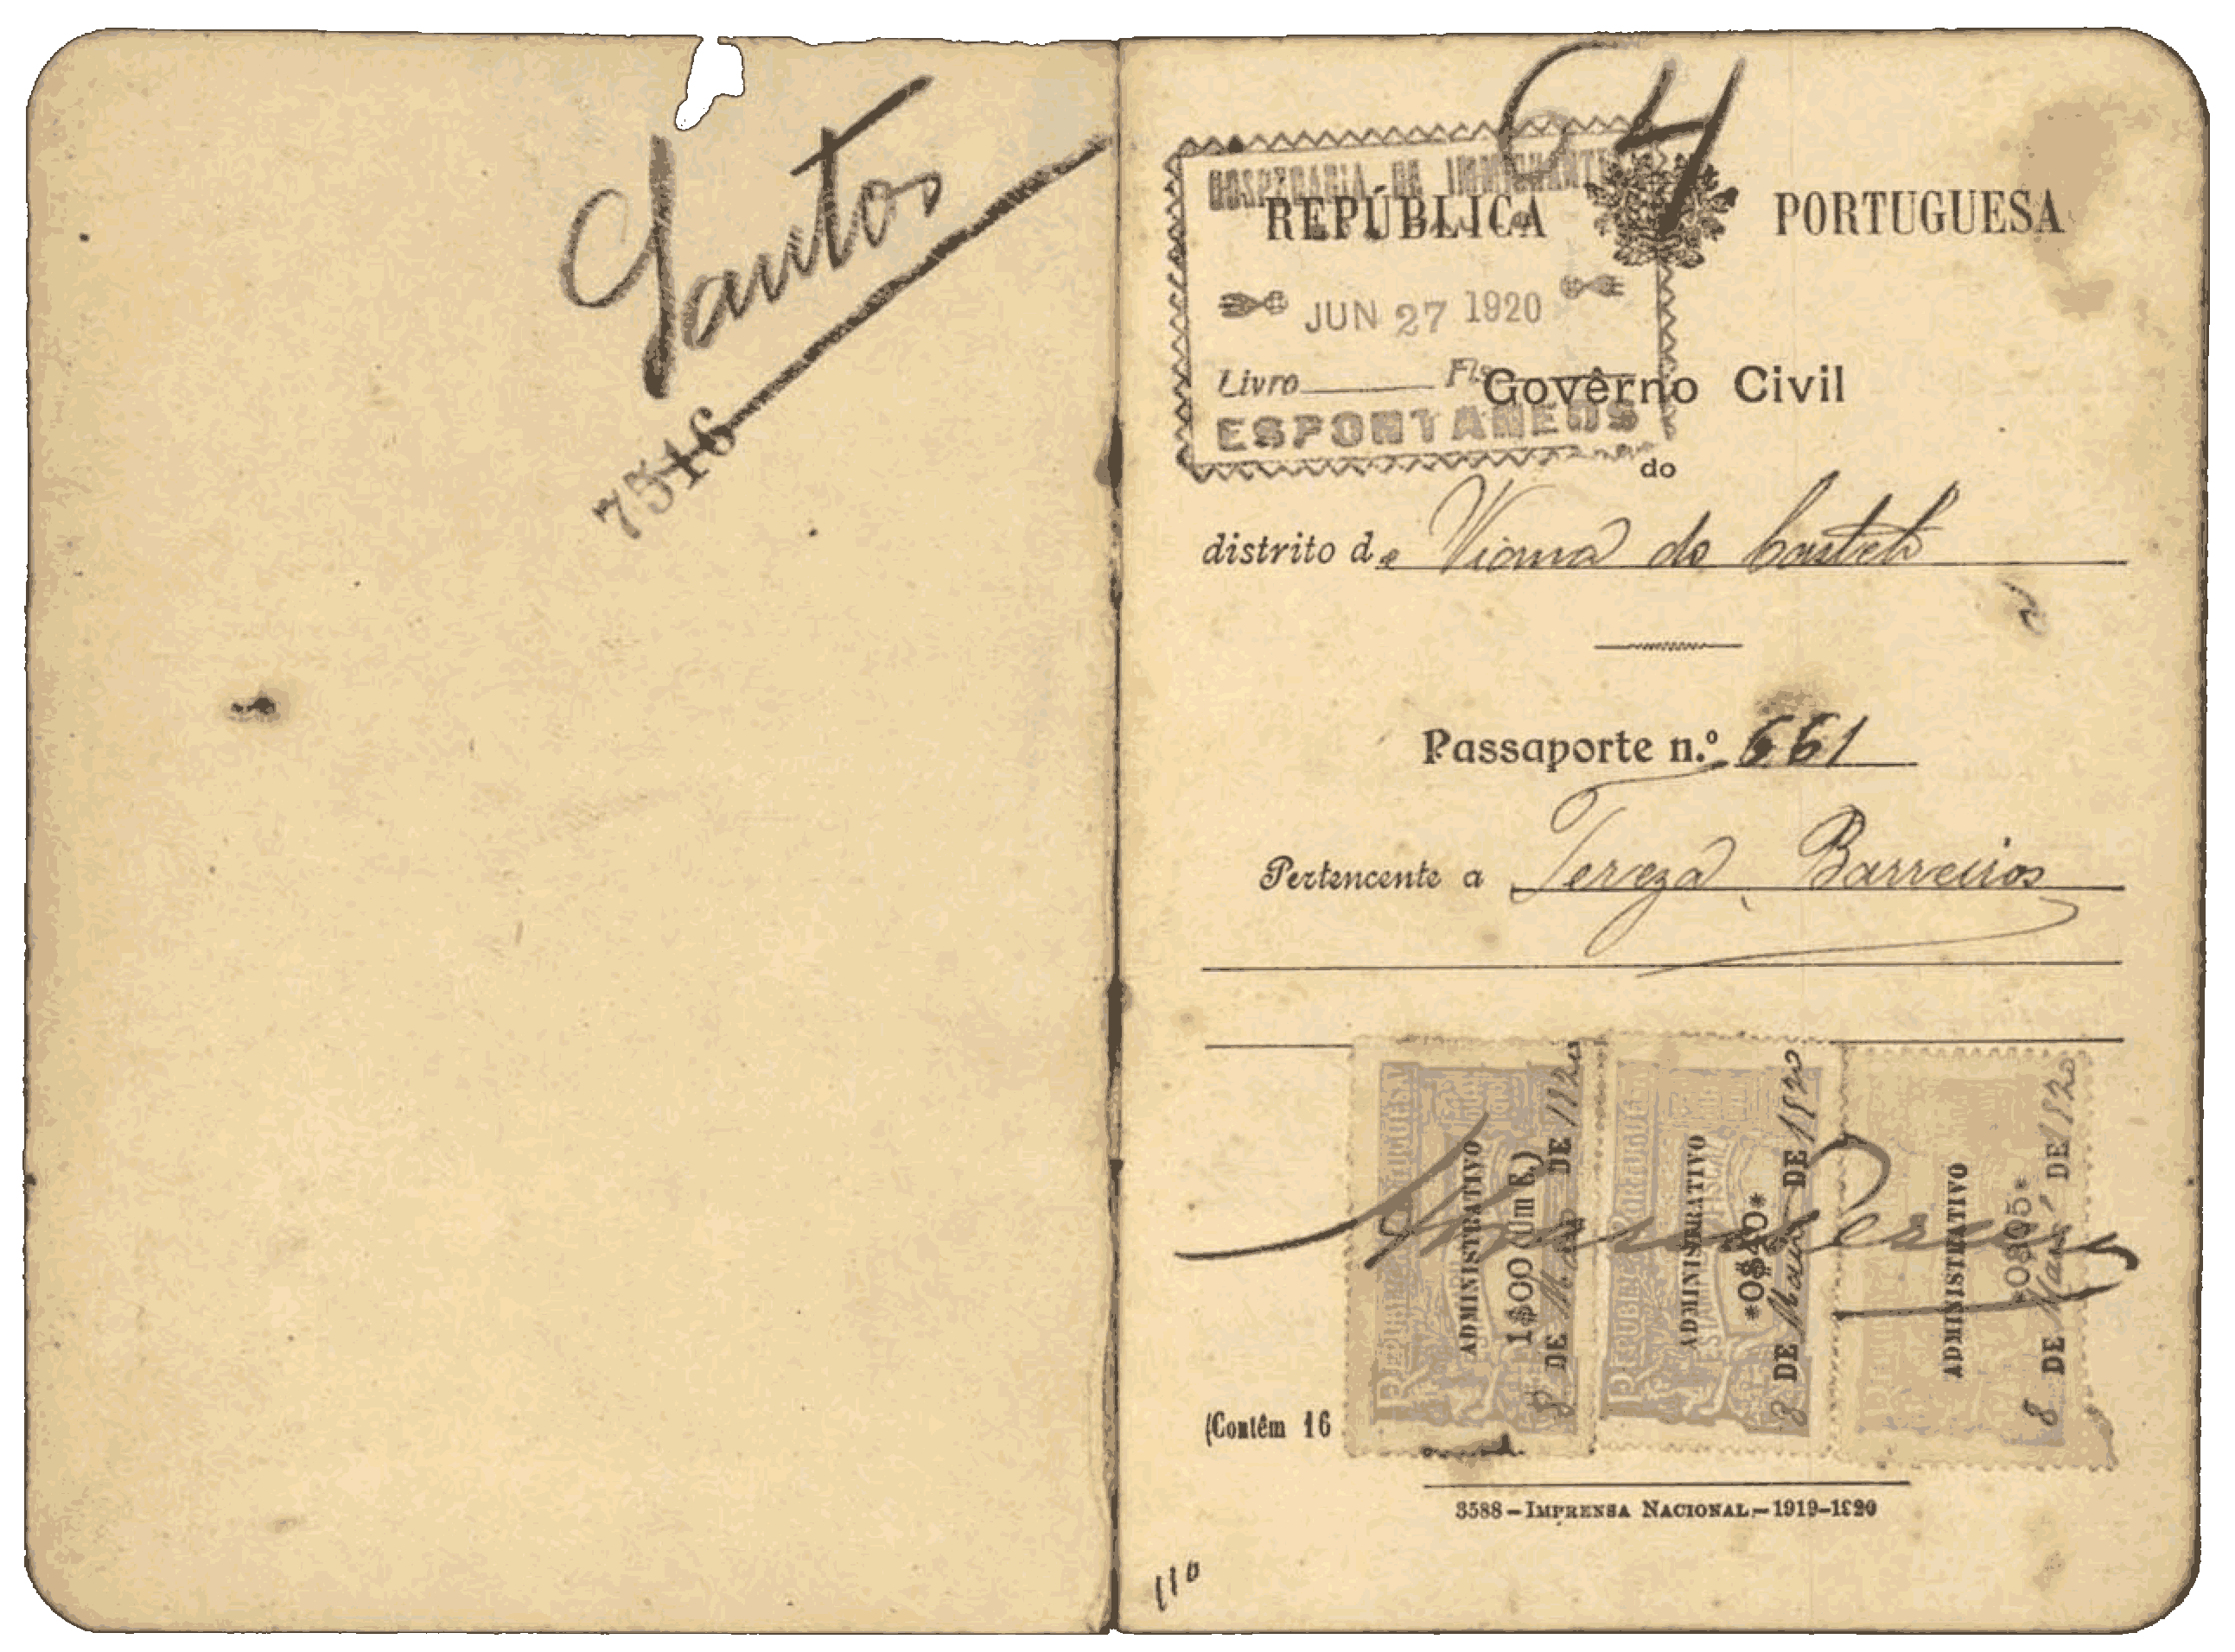 Santos
7516
64
HOSPEDARIA DE IMMIGRANTES
REPÚBLICA PORTUGUESA
JUN 27 1920
Livro Fls
Govêrno Civil
ESPONTANEOS
do
distrito de Viana do Castelo
Passaporte n.º 661
Pertencente a Tereza Barreiros
ADMINISTRATIVO
1$00 (Um E.)
8 DE Maio DE 1920
ADMINISTRATIVO
*0$40*
8 DE Maio DE 1920
ADMINISTRATIVO
*0$05*
8 DE Maio DE 1920
(Contêm 16
3588—IMPRENSA NACIONAL—1919-1920
110